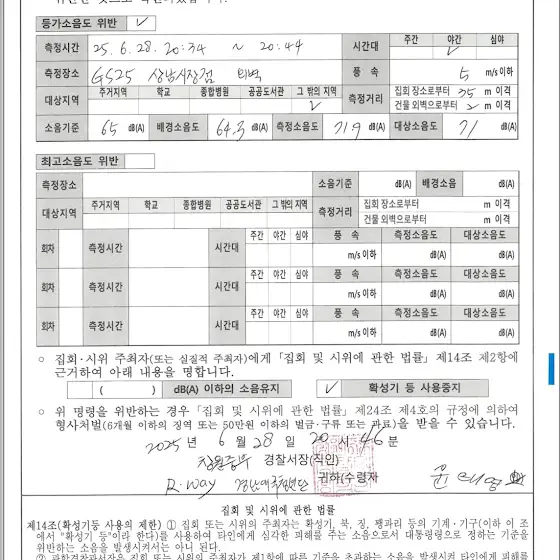 등가소음도 위반 ✓
측정시간 25. 6. 28. 20:34 ~ 20:44 시간대 주간 야간 심야 ✓
측정장소 GS25 상남시장점 외벽 풍 속 5 m/s이하
대상지역 주거지역 학교 종합병원 공공도서관 그 밖의 지역 ✓ 측정거리 집회 장소로부터 35 m 이격
건물 외벽으로부터 2 m 이격
소음기준 65 dB(A) 배경소음도 64.3 dB(A) 측정소음도 71.9 dB(A) 대상소음도 71 dB(A)
최고소음도 위반
측정장소 소음기준 dB(A) 배경소음 dB(A)
대상지역 주거지역 학교 종합병원 공공도서관 그 밖의 지역 측정거리 집회 장소로부터 m 이격
건물 외벽으로부터 m 이격
회차 측정시간 시간대 주간 야간 심야 풍 속 측정소음도 대상소음도
m/s이하 dB(A) dB(A)
회차 측정시간 시간대 주간 야간 심야 풍 속 측정소음도 대상소음도
m/s이하 dB(A) dB(A)
회차 측정시간 시간대 주간 야간 심야 풍 속 측정소음도 대상소음도
m/s이하 dB(A) dB(A)
○ 집회·시위 주최자(또는 실질적 주최자)에게 「집회 및 시위에 관한 법률」 제14조 제2항에
근거하여 아래 내용을 명합니다.
( ) dB(A) 이하의 소음유지 ✓ 확성기 등 사용중지
○ 위 명령을 위반하는 경우 「집회 및 시위에 관한 법률」 제24조 제4호의 규정에 의하여
형사처벌(6개월 이하의 징역 또는 50만원 이하의 벌금·구류 또는 과료)을 받을 수 있습니다.
2025 년 6 월 28 일 20 시 46 분
창원중부 경찰서장(직인)
R-way 귀하(수령자
집회 및 시위에 관한 법률
제14조(확성기등 사용의 제한) ① 집회 또는 시위의 주최자는 확성기, 북, 징, 꽹과리 등의 기계·기구(이하 이 조
에서 "확성기 등"이라 한다)를 사용하여 타인에게 심각한 피해를 주는 소음으로서 대통령령으로 정하는 기준을
위반하는 소음을 발생시켜서는 아니 된다.
② 관할경찰관서장은 집회 또는 시위의 주최자가 제1항에 따른 기준을 초과하는 소음을 발생시켜 타인에게 피해를